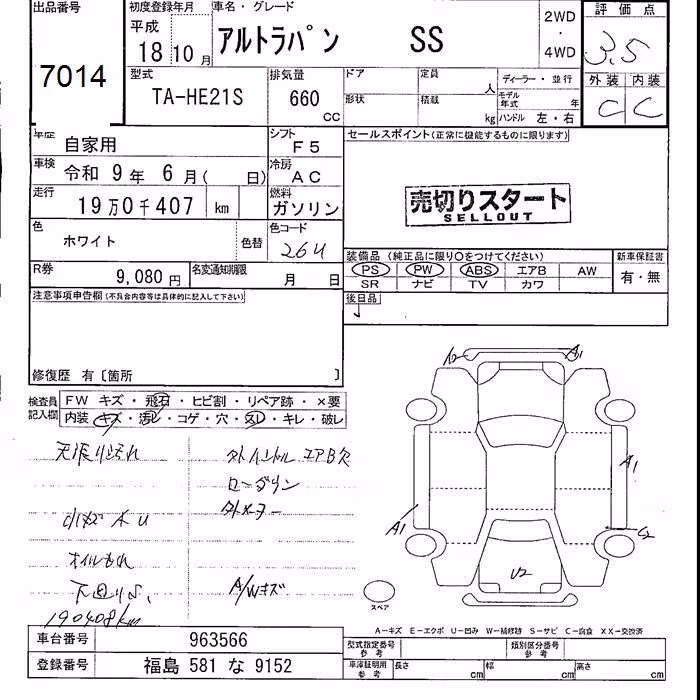 出品番号 初度登録年月 車名・グレード 評価点
平成 2WD
7014 18 10月 アルトラパン SS ・ 3.5
4WD
型式 排気量 ドア 定員 人 ディーラー・並行 外装 内装
TA-HE21S 660 CC 形状 積載 kg モデル年式 年 C C
ハンドル 左・右
車歴 自家用 シフト F5 セールスポイント(正常に機能するものに限ります)
車検 令和 9年 6月( 日) 冷房 AC
走行 19万0千407 km 燃料 ガソリン 売切りスタート
SELLOUT
色 ホワイト 色替 色コード 26U
装備品(純正品に限り○をつけてください) 新車保証書
R券 9,080円 名変通知期限 月 日 PS PW ABS エアB AW 有・無
SR ナビ TV カワ
注意事項申告欄(不具合内容等は具体的に記入して下さい) 後日品
修復歴 有〔箇所 〕
検査員記入欄 FW キズ・飛石・ヒビ割・リペア跡・×要
内装・キズ・汚レ・コゲ・穴・スレ・キレ・破レ
A1
天張り汚れ 外ハンドル エアB欠
ローダウン A1
外メーター
小キズ 大U A1
オイルもれ
下廻りS、 A/Wキズ U2
190408km スペア
A−キズ E−エクボ U−凹み W−補修跡 S−サビ C−腐食 XX−交換済
車台番号 963566 型式指定番号 参考 類別区分番号 参考
登録番号 福島 581 な 9152 車庫証明用 参考 長さ cm 幅 cm 高さ cm